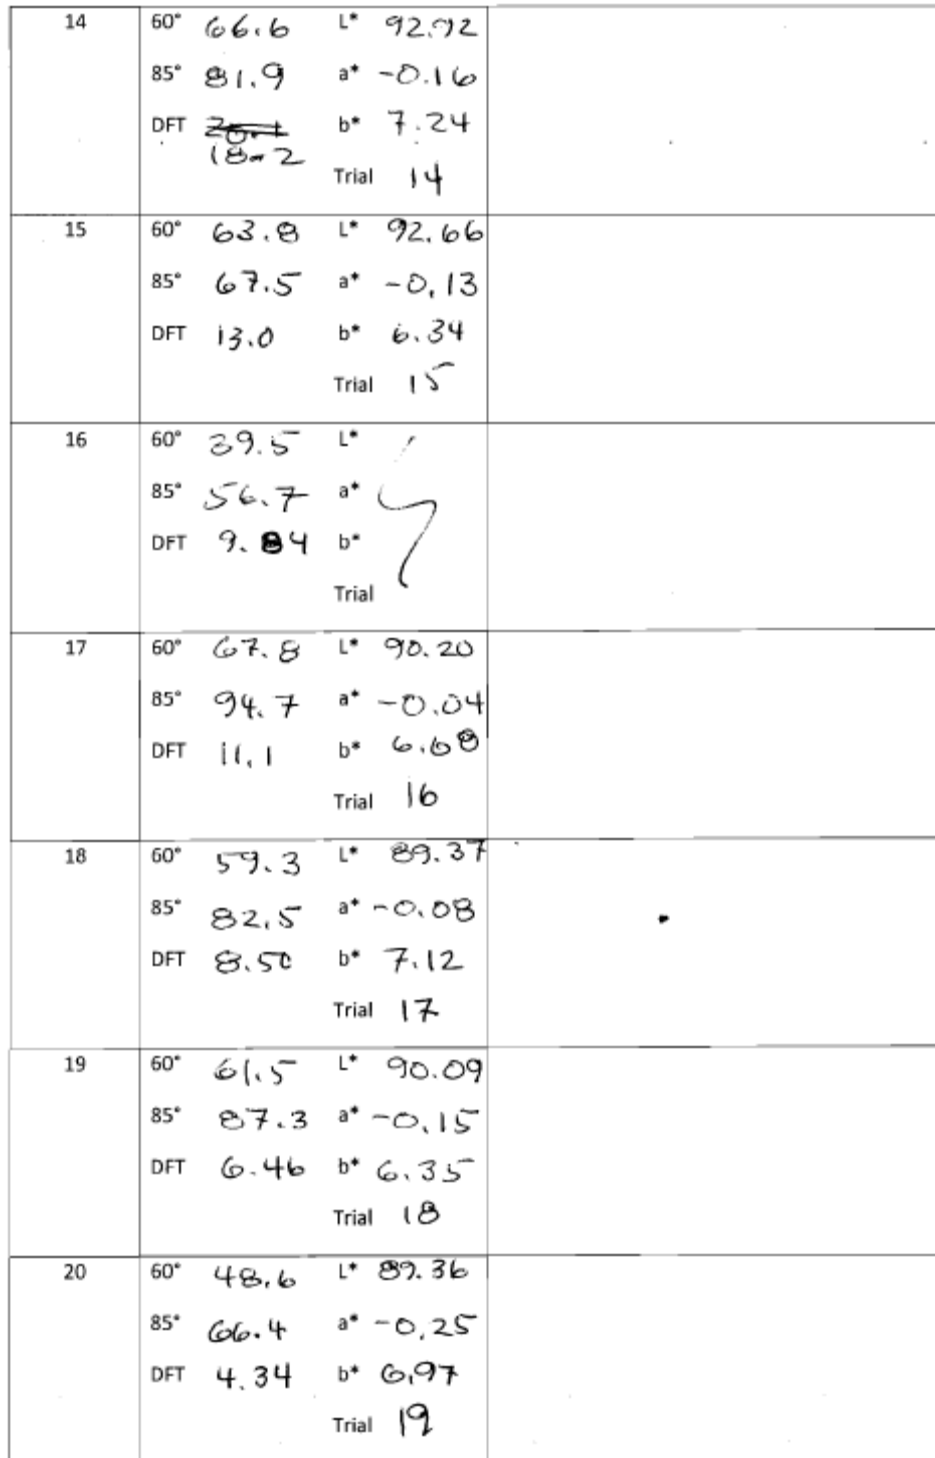 14 60° 66.6 L* 92.92
85° 81.9 a* -0.16
DFT b* 7.24
18.2
Trial 14
15 60° 63.8 L* 92.66
85° 67.5 a* -0.13
DFT 13.0 b* 6.34
Trial 15
16 60° 39.5 L*
85° 56.7 a*
DFT 9.84 b*
Trial
17 60° 67.8 L* 90.20
85° 94.7 a* -0.04
DFT 11.1 b* 6.68
Trial 16
18 60° 59.3 L* 89.37
85° 82.5 a* -0.08
DFT 8.50 b* 7.12
Trial 17
19 60° 61.5 L* 90.09
85° 87.3 a* -0.15
DFT 6.46 b* 6.35
Trial 18
20 60° 48.6 L* 89.36
85° 66.4 a* -0.25
DFT 4.34 b* 6.97
Trial 19